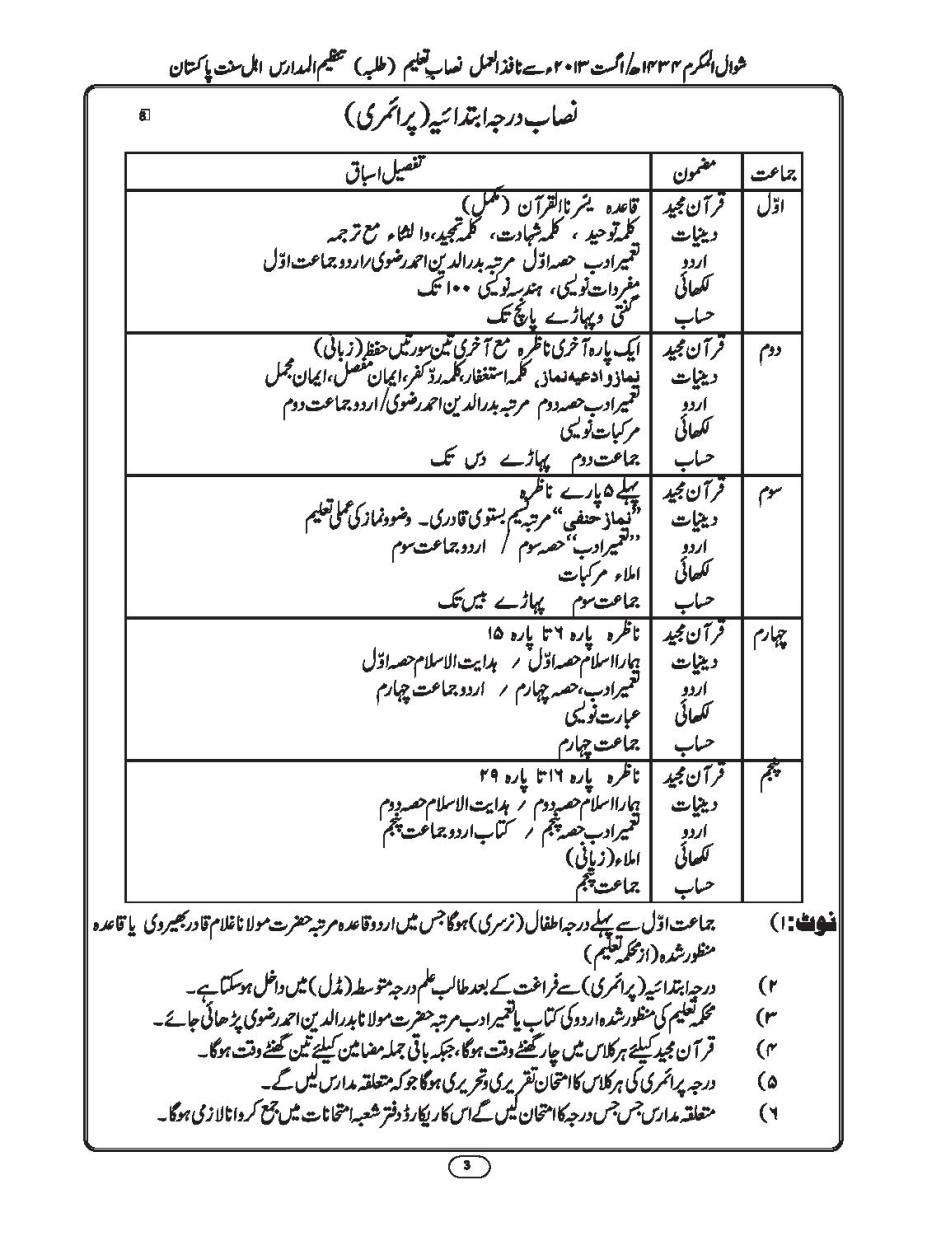 شوال المکرم ۱۴۳۴ھ/اگست ۲۰۱۳ء سے نافذ العمل نصاب تعلیم (طلبہ) تنظیم المدارس اہل سنت پاکستان
نصاب درجہ ابتدائیہ (پرائمری)
جماعت مضمون تفصیل اسباق
اوّل قرآن مجید قاعدہ یسّرنا القرآن (مکمل)
دینیات کلمہ توحید ، کلمہ شہادت، کلمہ تمجید، والثناء مع ترجمہ
اردو تعمیر ادب حصہ اوّل مرتبہ بدرالدین احمد رضوی/اردو جماعت اوّل
لکھائی مفردات نویسی، ہندسہ نویسی ۱۰۰ تک
حساب گنتی و پہاڑے پانچ تک
دوم قرآن مجید ایک پارہ آخری ناظرہ مع آخری تین سورتیں حفظ (زبانی)
دینیات نماز و ادعیہ نماز، کلمہ استغفار، کلمہ ردّ کفر، ایمان مفصل، ایمان مجمل
اردو تعمیر ادب حصہ دوم مرتبہ بدرالدین احمد رضوی/اردو جماعت دوم
لکھائی مرکبات نویسی
حساب جماعت دوم پہاڑے دس تک
سوم قرآن مجید پہلے ۵ پارے ناظرہ
دینیات ”نماز حنفی“ مرتبہ نسیم بستوی قادری۔ وضو و نماز کی عملی تعلیم
اردو ”تعمیر ادب“ حصہ سوم / اردو جماعت سوم
لکھائی املاء مرکبات
حساب جماعت سوم پہاڑے بیس تک
چہارم قرآن مجید ناظرہ پارہ ۶ تا پارہ ۱۵
دینیات ہمارا اسلام حصہ اوّل / ہدایت الاسلام حصہ اوّل
اردو تعمیر ادب، حصہ چہارم / اردو جماعت چہارم
لکھائی عبارت نویسی
حساب جماعت چہارم
پنجم قرآن مجید ناظرہ پارہ ۱۶ تا پارہ ۲۹
دینیات ہمارا اسلام حصہ دوم / ہدایت الاسلام حصہ دوم
اردو تعمیر ادب حصہ پنجم / کتاب اردو جماعت پنجم
لکھائی املاء (زبانی)
حساب جماعت پنجم
نوٹ: ۱) جماعت اوّل سے پہلے درجہ اطفال (نرسری) ہوگا جس میں اردو قاعدہ مرتبہ حضرت مولانا غلام قادر بھیروی یا قاعدہ
منظور شدہ (از محکمہ تعلیم)
۲) درجہ ابتدائیہ (پرائمری) سے فراغت کے بعد طالب علم درجہ متوسطہ (مڈل) میں داخل ہوسکتا ہے۔
۳) محکمہ تعلیم کی منظور شدہ اردو کی کتاب یا تعمیر ادب مرتبہ حضرت مولانا بدرالدین احمد رضوی پڑھائی جائے۔
۴) قرآن مجید کیلئے ہر کلاس میں چار گھنٹے وقت ہوگا، جبکہ باقی جملہ مضامین کیلئے تین گھنٹے وقت ہوگا۔
۵) درجہ پرائمری کی ہر کلاس کا امتحان تقریری و تحریری ہوگا جو کہ متعلقہ مدارس لیں گے۔
۶) متعلقہ مدارس جس جس درجہ کا امتحان لیں گے اس کا ریکارڈ دفتر شعبہ امتحانات میں جمع کروانا لازمی ہوگا۔
3